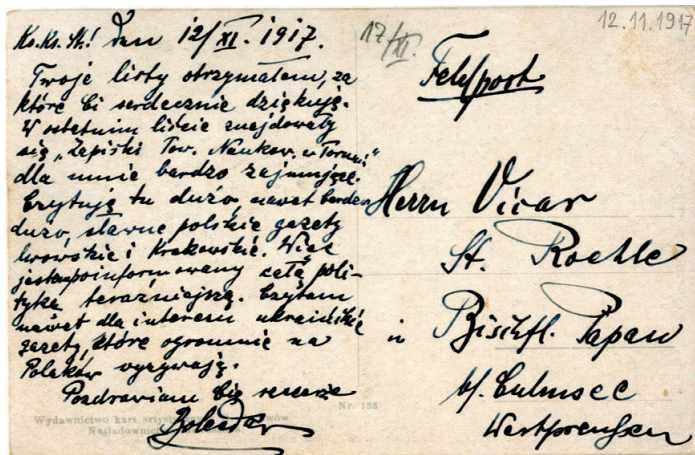 Ks. St.! Den 12/XI. 1917.
Twoje listy otrzymałem, za
które Ci serdecznie dziękuję.
W ostatnim liście znajdowały
się „Zapiski Tow. Naukow. w Toruniu"
dla mnie bardzo zajmujące.
Czytuję tu dużo, nawet bardzo
dużo, sławne polskie gazety
lwowskie i Krakowskie. Więc
jestem poinformowany całą poli-
tyką teraźniejszą. Czytam
nawet dla interesu ukraińskie
gazety, które ogromnie na
Polaków wygrywają.
Pozdrawiam Cię szczerze
17/XI.
12.11.1917
Feldpost
Herrn Vicar
St. Roehle
in Bischfl. Papau
b/Culmsee
Westpreußen
Wydawnictwo kart artyst
Nr. 188